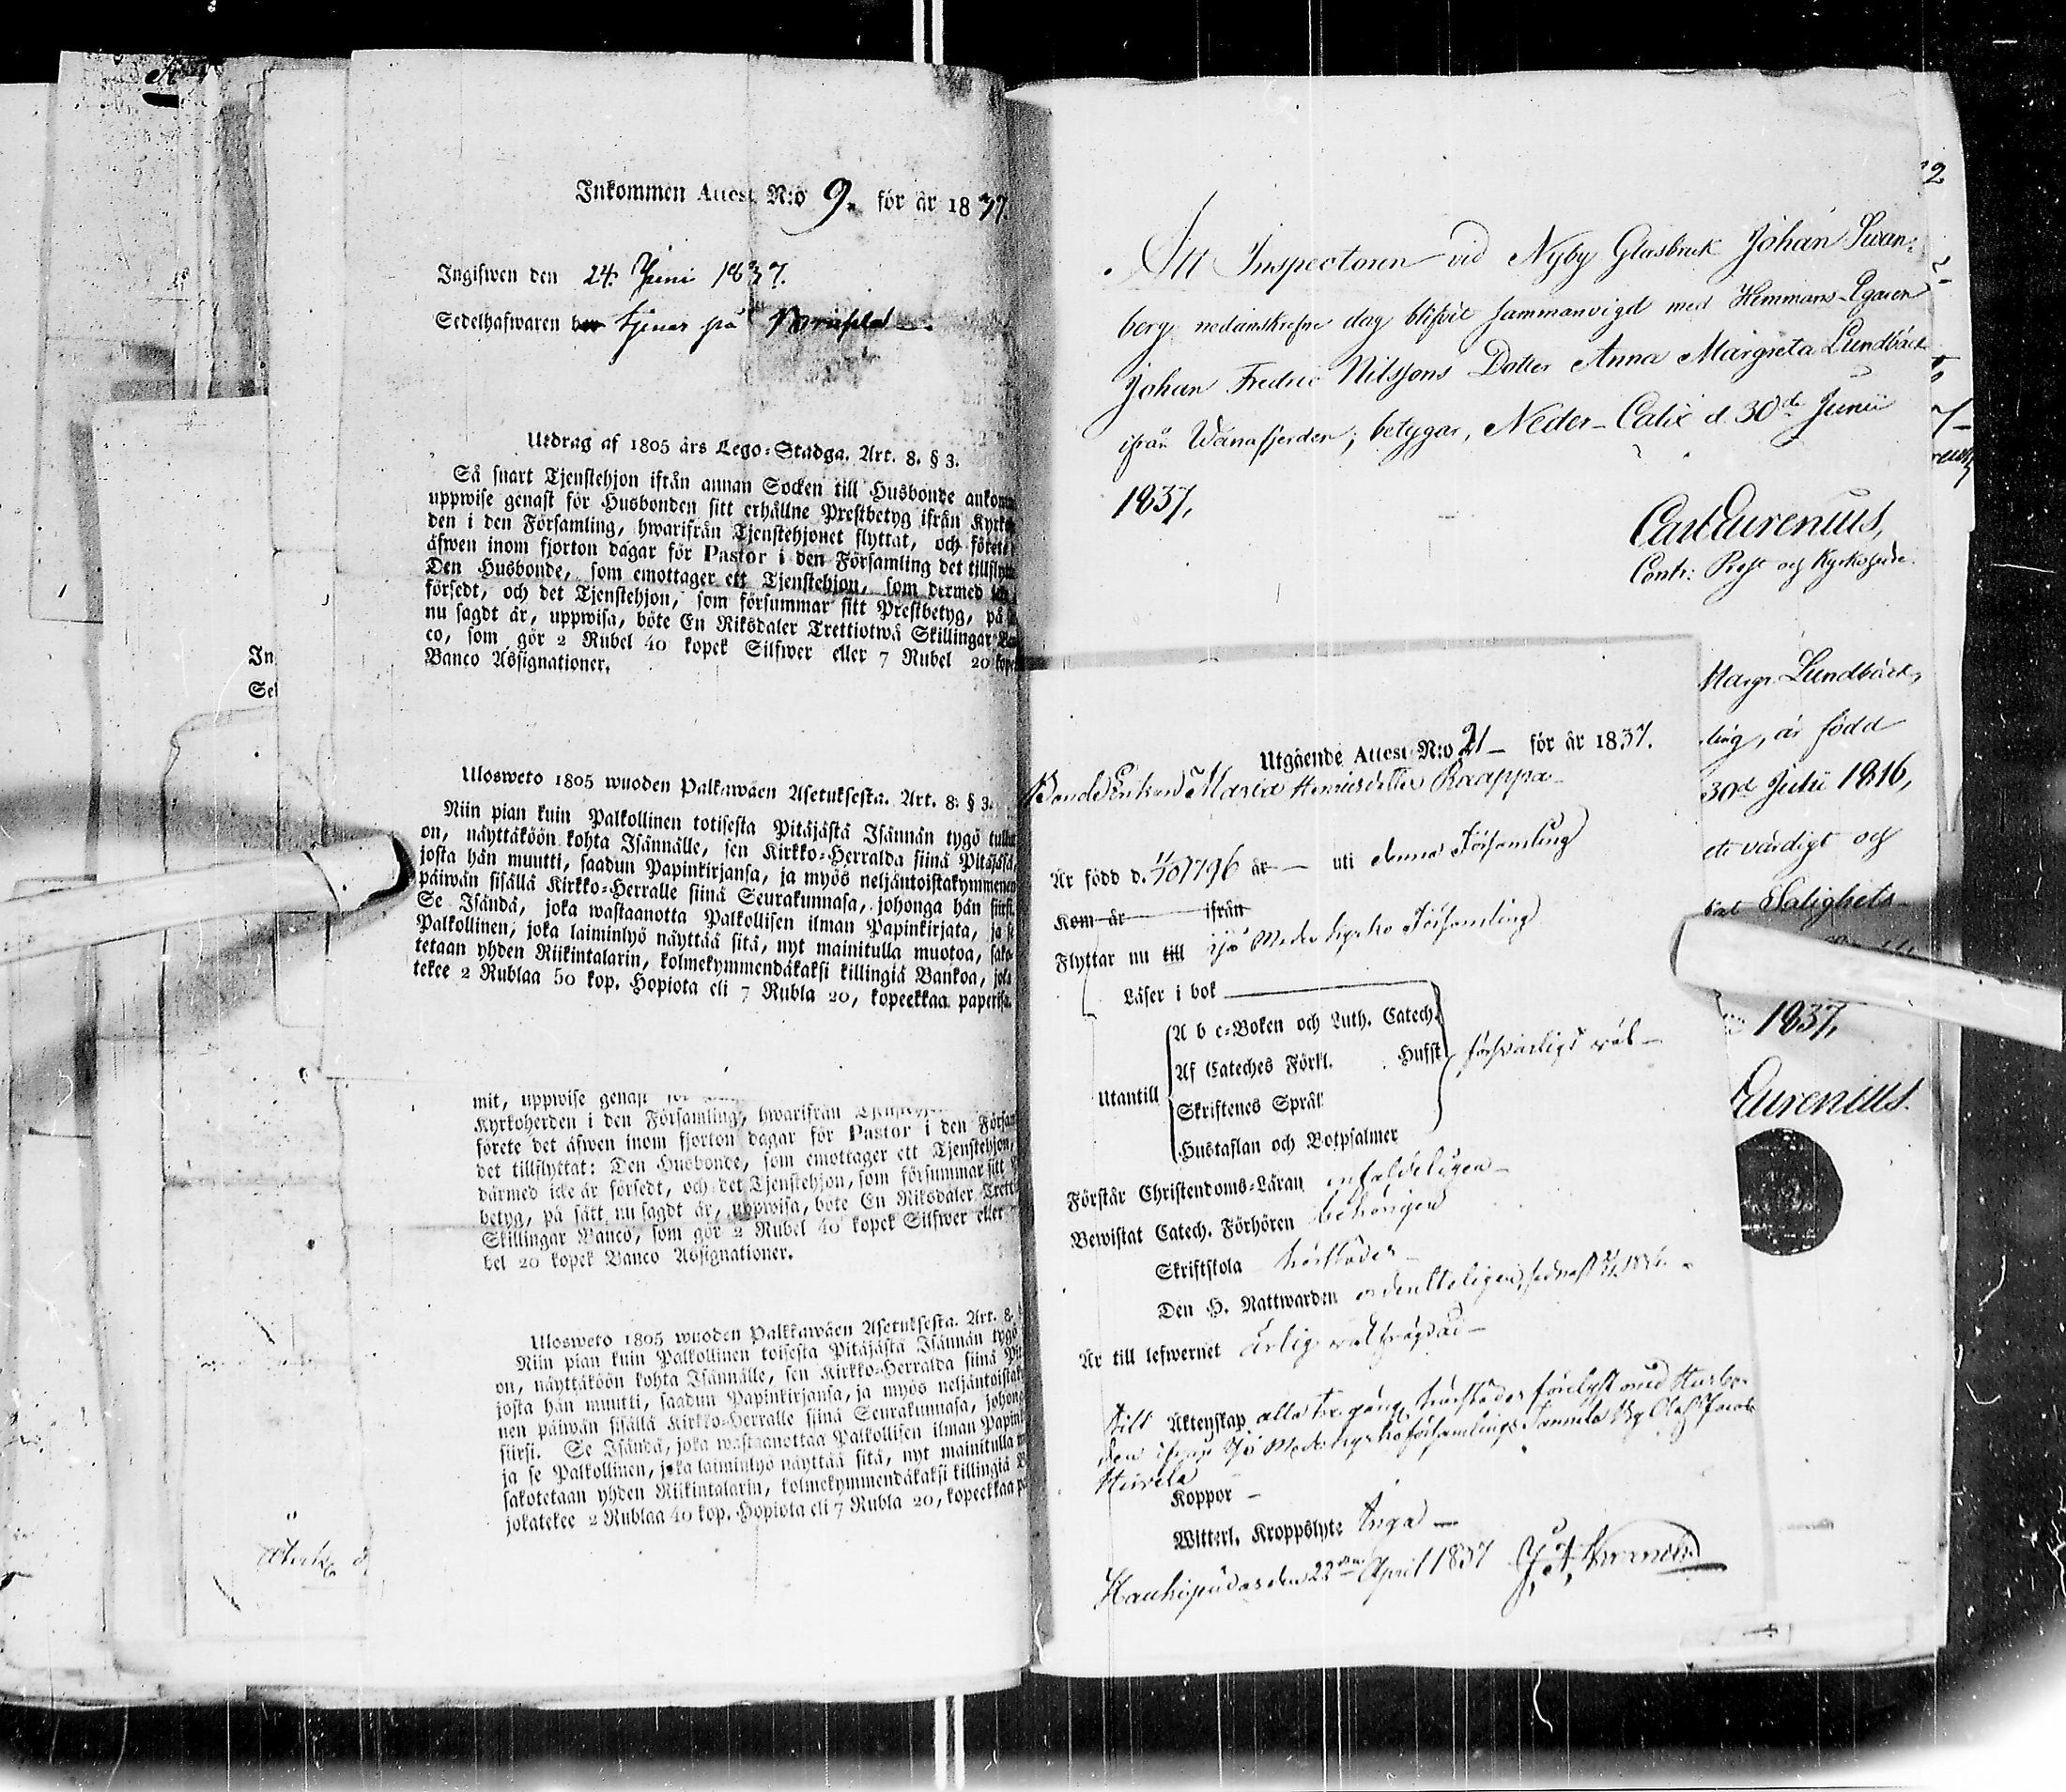 Inkommen Attest N:o 9. för år 1837.
Ingifwen den 24. Juni 1837.
Sedelhafwaren bor tjenar på
Utdrag af 1805 års Lego-Stadga. Art. 8. § 3.
Så snart Tjenstehjon ifrån annan Socken till Husbonde ankom
uppwise genast för Husbonden sitt erhållne Prestbetyg ifrån Kyrko
den i den Församling, hwarifrån Tjenstehjonet flyttat, och förete
äfwen inom fjorton dagar för Pastor i den Församling det tillflytt
Den Husbonde, som emottager ett Tjenstehjon, som dermed
försedt, och det Tjenstehjon, som försummar sitt Prestbetyg, på
nu sagdt är, uppwisa, böte En Riksdaler Trettiotwå Skillingar
co, som gör 2 Rubel 40 kopek Silfwer eller 7 Rubel 20 kope
Banco Assignationer.
Ulosweto 1805 wuoden Palkawäen Asetuksesta. Art. 8. § 3.
Niin pian kuin Palkollinen totisesta Pitäjästä Isännän tygö tullut
on, näyttäköön kohta Isännälle, sen Kirkko-Herralda siinä Pitäjäsä,
josta hän muutti, saadun Papinkirjansa, ja myös neljäntoistakymmenen
päiwän sisällä Kirkko-Herralle siinä Seurakunnasa, johonga hän siirsi.
Se Isändä, joka wastaanotta Palkollisen ilman Papinkirjata, ja se
Palkollinen, joka laiminlyö näyttää sitä, nyt mainitulla muotoa, sako-
tetaan yhden Riikintalarin, kolmekymmendäkaksi killingiä Bankoa, joka
tekee 2 Rublaa 50 kop. Hopiota eli 7 Rubla 20, kopeekkaa paperisa.
mit, uppwise genast
Kyrkoherden i den Församling, hwarifrån
förete det äfwen inom fjorton dagar för Pastor i den Försam
det tillflyttat: Den Husbonde, som emottager ett Tjenstehjon,
därmed icke är försedt, och det Tjenstehjon, som försummar sitt
betyg, på sätt nu sagdt är, uppwisa, böte En Riksdaler Tretti
Skillingar Banco, som gör 2 Rubel 40 kopek Silfwer eller
bel 20 kopek Banco Assignationer.
Ulosweto 1805 wuoden Palkkawäen Asetuksesta. Art. 8.
Niin pian kuin Palkollinen toisesta Pitäjästä Isännän tygö
on, näyttäköön kohta Isännälle, sen Kirkko-Herralda siinä Pit
josta hän muutti, saadun Papinkirjansa, ja myös neljäntoistak
nen päiwän sisällä Kirkko-Herralle siinä Seurakunnasa, johong
siirsi. Se Isändä, joka wastaanottaa Palkollisen ilman Papink
ja se Palkollinen, joka laiminlyö näyttää sitä, nyt mainitulla
sakotetaan yhden Riikintalarin, kolmekymmendäkaksi killingiä B
jokatekee 2 Rublaa 40 kop. Hopiota eli 7 Rubla 20, kopeekkaa
In
Se
Att Inspectoren vid Nyby Glasbruk Johan Swan-
berg nedanskrefne dag blifvit sammanvigd med Hemmans-Egaren
Johan Fredric Nilssons Dotter Anna Margreta Lundbäck
ifrån Wånafjerden, betygar, Neder-Calix d. 30de Junii
1837,
Carl Aurenius,
Contr: Prost och Kyrkoherde.
Margr. Lundbäck,
ling, är född
30de Julii 1816,
värdigt och
Salighets
1837,
Aurenius.
Utgående Attest N:o 21 för år 1837.
BondeEnkan Maria Henricsdotter Kaappa
Är född d. 11/10 1796 år uti denna Församling
Kom år ifrån
Flyttar nu till Ijo Moderkyrko Församling
Läser i bok
Utantill
A b c-Boken och Luth. Catech.
Af Cateches Förkl. Hufst försvarligt väl
Skriftenes Språk
Hustaflan och Botpsalmer
Förstår Christendoms-Läran enfaldeligen
Bewistat Catech. Förhören behörigen
Skriftskola härstädes
Den H. Nattwarden ordenteligen, sednast 1836.
Är till lefwernet ärlig välfrägdad
till Äktenskap alla tre gång härstädes förelyst med
ifrån Ijo Moderkyrkoförsamlings
Koppor
Witterl. Kroppslyte Inga
Haukipudas den 22 April 1837